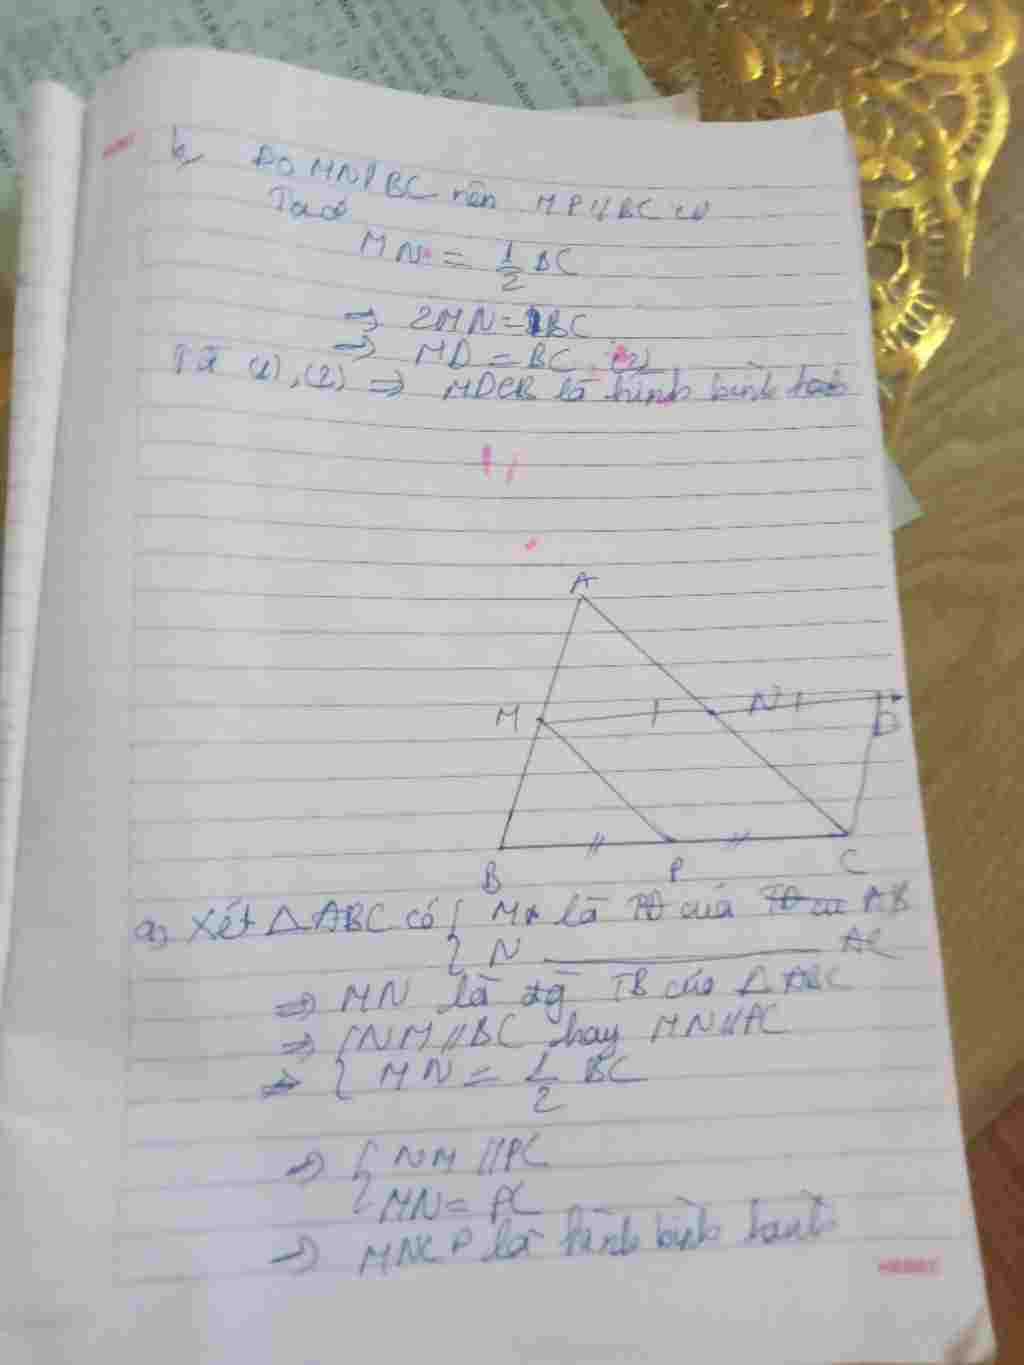 b, Do MN//BC nên MP//BC (1)
Ta có
MN = 1/2 BC
=> 2MN = 1BC
=> MD = BC (2)
Từ (1), (2) => MDCB là hình bình hành
A
M N D
B P C
a, Xét △ABC có { M là TĐ của AB
{ N ———— AC
=> MN là đg TB của △ABC
=> { NM//BC hay MN//PC
=> { MN = 1/2 BC
=> { NM//PC
{ MN = PC
=> MNCP là hình bình hành